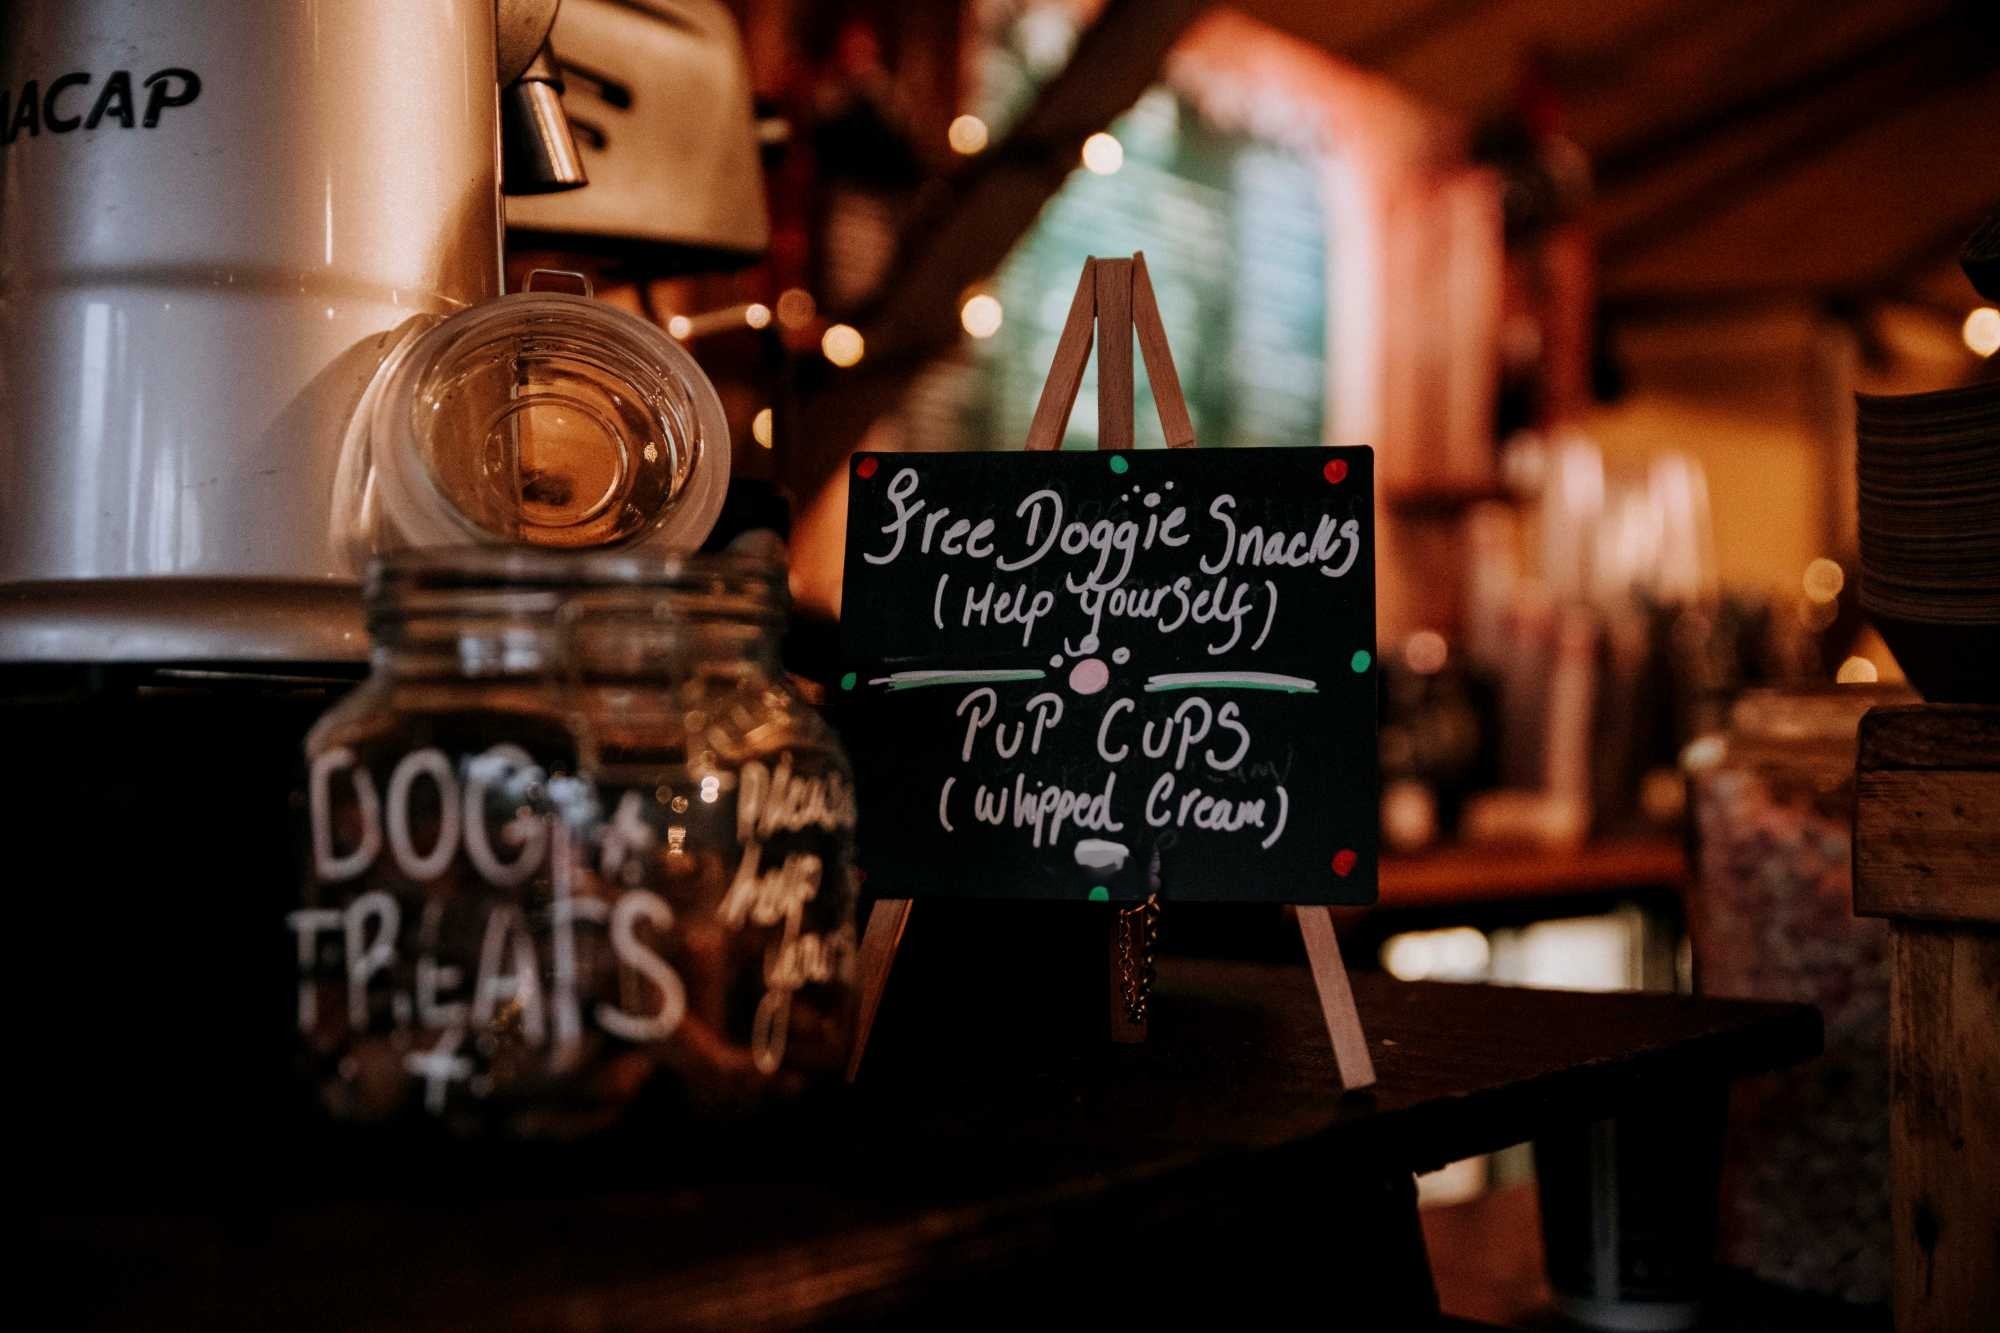 MACAP
Free Doggie Snacks
(Help yourself)
PUP CUPS
(Whipped Cream)
DOG
TREATS
Please
help
your